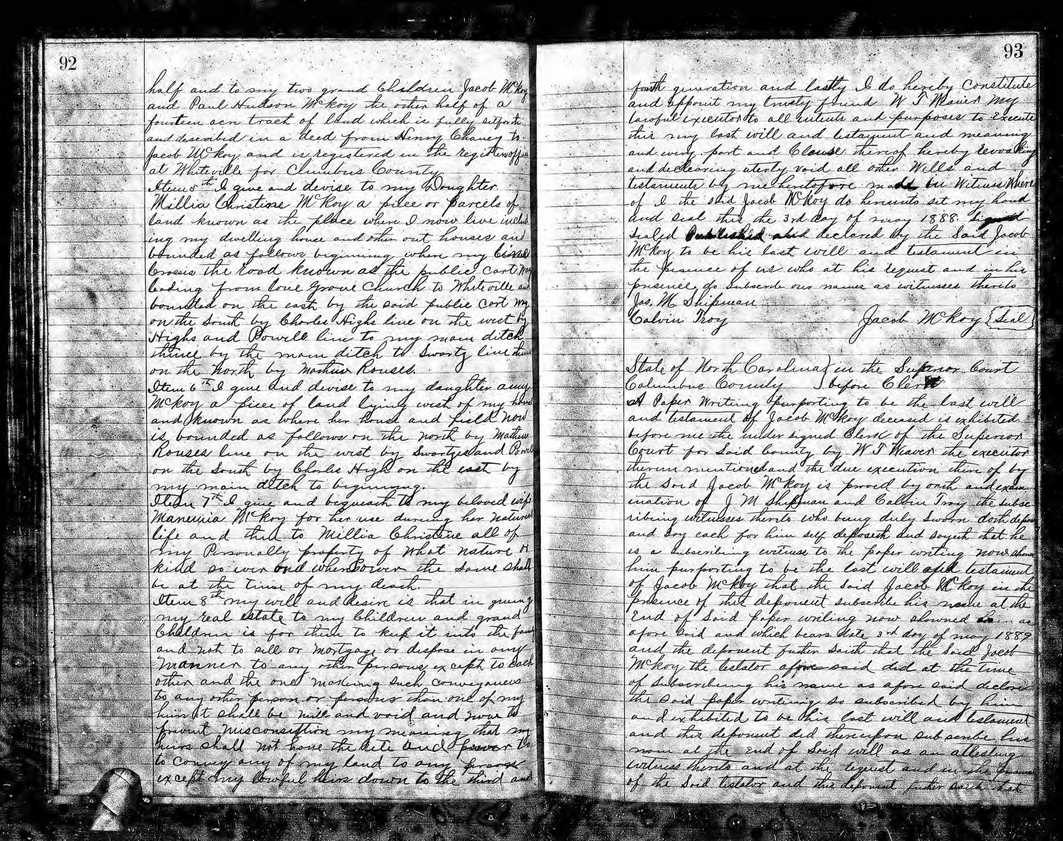 92
half and to my two grand Children Jacob McKoy
and Paul Hudson McKoy the other half of a
fourteen acre tract of land which is fully set forth
and described in a deed from Henry Chancy to
Jacob McKoy and is registered in the registers office
at Whiteville for Clumbus County
Item 5th I give and devise to my Daughter
Millia Christine McKoy a piece or parcels of
land known as the place where I now live includ
ing my dwelling house and other out houses and
bounded as follows biginning when my line
Cross the road known as the public cart way
leading from love Grove Church to Whiteville and
bounded on the east by the said public cart way
on the South by Charles Highs line on the west by
Highs and Powell line to my main ditch
thence by the main ditch to Swartz line thence
on the North by Mathew Rouses
Item 6th I give and devise to my daughter amy
McKoy a piece of land lying west of my home
and known as where her house and field now
is bounded as follows on the north by Mathew
Rouses line on the west by Swartz and Powell
on the South by Charles High on the east by
my main ditch to biginning.
Item 7th I give and bequeath to my beloved wife
McKoy for her use during her natural
life and then to Millia Christine all of
my Personally property of What nature or
kind so ever and whersoever the same shall
be at the time of my death
Item 8th my will and desire is that in giving
my real estate to my Children and grand
Children is for them to keep it into the
and not to sell or mortgage or dispose in any
manner to any other persons except to each
other and the one making such conveyances
to any other person or persons than one of my
heirs it shall be null and void and now to
prevent misconscrption my meaning that my
heirs shall not have the rite and power to
to convey any of my land to any person
except my lawful heirs down to the third and
93
fourth generation and lastly I do hereby Constitute
and appoint my trusty friend W T Weaver my
lawful executor to all intents and purposes to execute
this my last will and testament and meaning
and every part and Clause thereof hereby revoking
and declearing uterly void all other Wills and
testaments by me heretofore made In Witness Where
of I the said Jacob McKoy do hereunto set my hand
and seal this the 3rd day of may 1888 Signed
Sealed Published and declared By the Said Jacob
McKoy to be his last will and testament in
the presence of us who at his request and in his
presence do subscribe our names as witnesses thereto
Jas. M Shipman
Calvin Troy Jacob McKoy {Seal}
State of North Carolina } in the Superior Court
Columbus County } before Clerk
A Paper Writing purporting to be the last will
and testament of Jacob McKoy deceased is exhibited
before me the under signed Clerk of the Superior
Court for Said County by W T Weaver the executor
therein mentioned and the due execution there of by
the Said Jacob McKoy is proved by oath and exam
ination of J M Shipman and Calvin Troy the subsc
ribing witnesses thereto who being duly Sworn doth depose
and Say each for him self deposeth and sayeth that he
is a subscribing witness to the paper writing now shown
him purporting to be the last will and testament
of Jacob McKoy that the said Jacob McKoy in the
presence of this deponent subscribe his name at the
End of Said paper writing now showned as
afore said and which bears date 3rd day of may 1889
and the deponent futher Saith that the Said Jacob
McKoy the testator afore said did at the time
of subscribing his name as afore said declare
the said paper writing so subscribed by him
and exhibited to be his last will and testament
and this deponent did thereupon subscribe his
name at the End of Said will as an attesting
witness thereto and at the request and in the presence
of the Said testator and this deponent futher Saith that